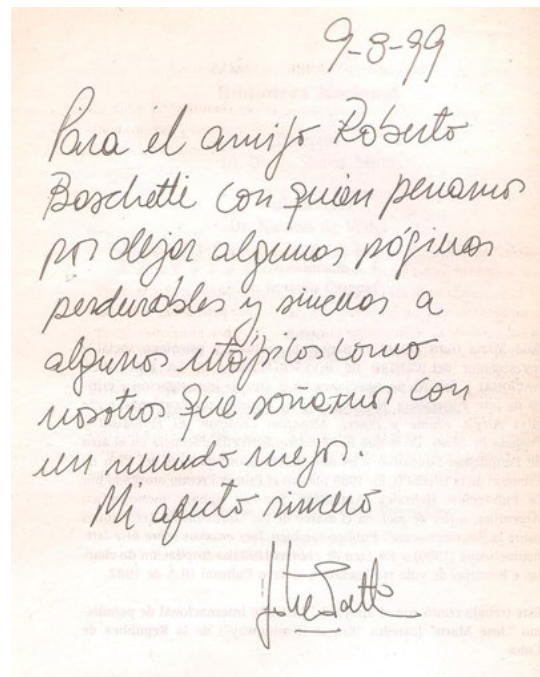 9-8-99
Para el amigo Roberto
Baschetti con quien penamos
por dejar algunas páginas
perdurables y sinceras a
algunos utópicos como
nosotros que soñamos con
un mundo mejor.
Mi afecto sincero